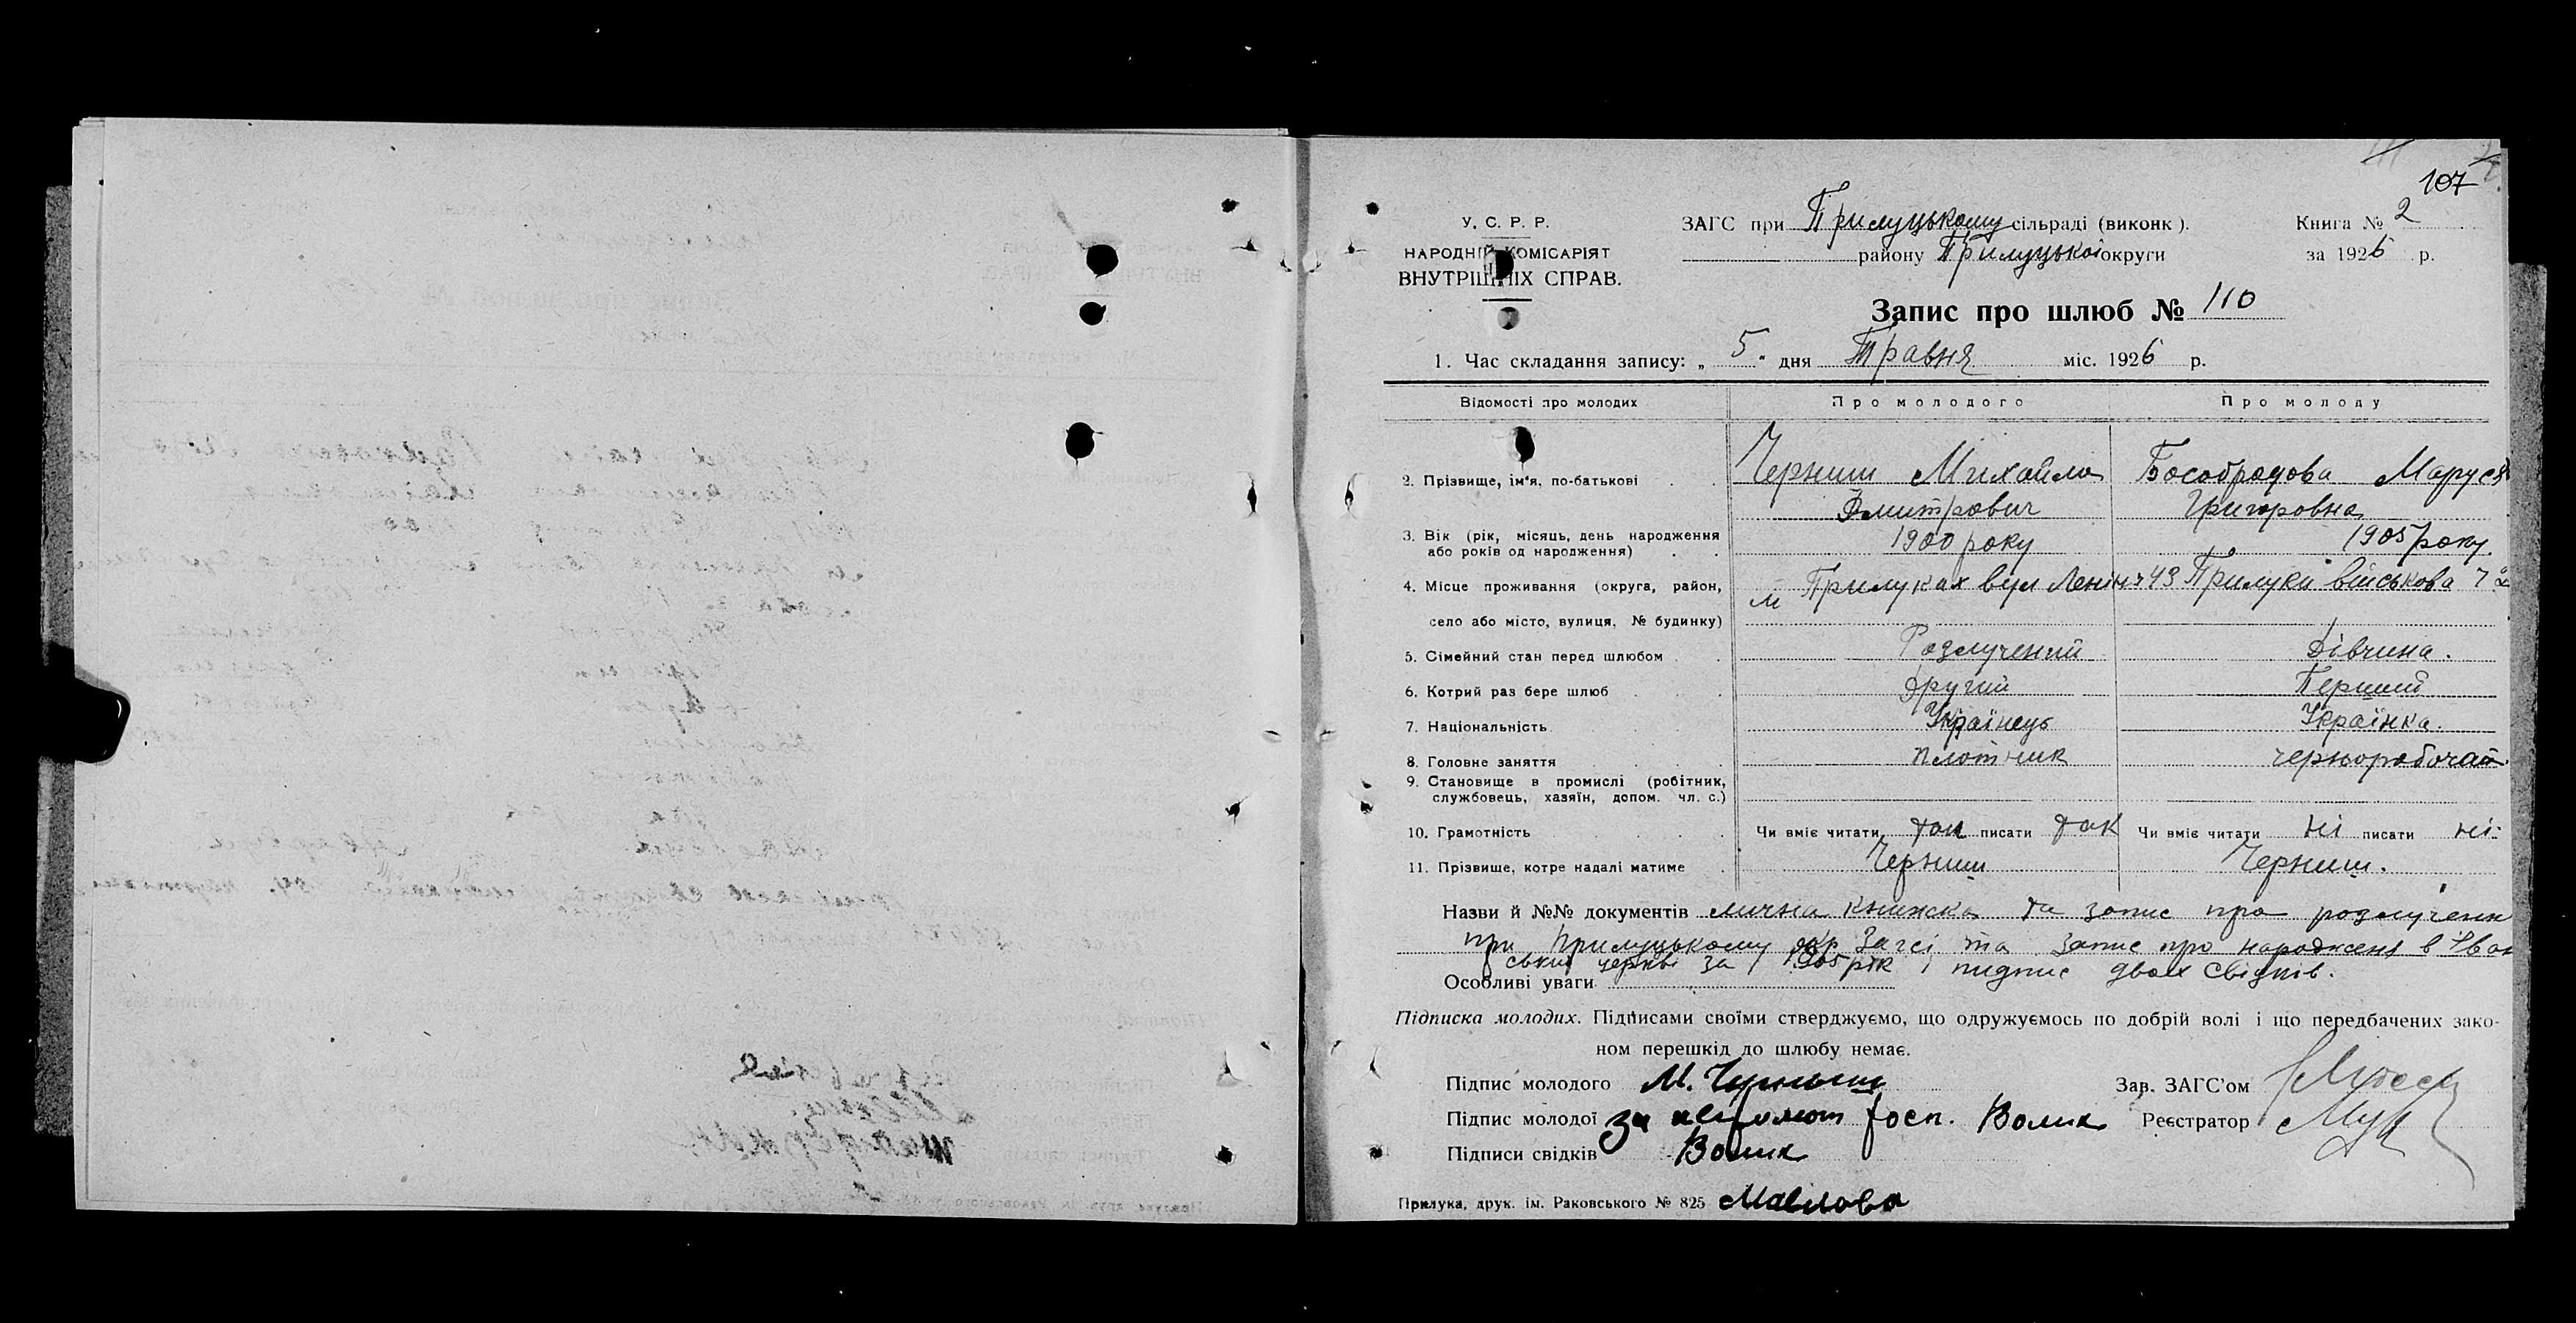 107
У. С. Р. Р.
НАРОДНІЙ КОМІСАРІЯТ
ВНУТРІШНІХ СПРАВ.
ЗАГС при Прилуцькому сільраді (виконк).
району Прилуцькоі округи
Книга № 2
за 1926 р.
Запис про шлюб № 110
1. Час складання запису: „ 5 " дня Травня міс. 1926 р.
Відомості про молодих Про молодого Про молоду
2. Прізвище, ім'я, по-батькові Черниш Михайло Бособродова Маруся
Дмитрович Григоровна
3. Вік (рік, місяць, день народження 1900 року 1905 року.
або років од народження)
4. Місце проживання (округа, район, м Прилуках вул Лени ч 43 Прилуки військова ч 2
село або місто, вулиця, № будинку)
5. Сімейний стан перед шлюбом Розлучений Дівчина.
6. Котрий раз бере шлюб другий Перший
7. Національність Українець Українка.
8. Головне заняття плотник чернорабочая
9. Становище в промислі (робітник,
службовець, хазяїн, допом. чл. с.)
10. Грамотність Чи вміє читати так писати так Чи вміє читати ні писати ні.
11. Прізвище, котре надалі матиме Черниш Черниш.
Назви й №№ документів лична книжка та запис про розлучени
при Прилуцькому окр Загсі та запис про народженя в Іван
ський церкві за 1905 рік і пидпис двох свідків.
Особливі уваги
Підписка молодих. Підписами своїми стверджуємо, що одружуємось по добрій волі і що передбачених зако-
ном перешкід до шлюбу немає.
Підпис молодого М. Черныш Зав. ЗАГС'ом
Підпис молодої за неграмот росп. Волик Реєстратор
Підписи свідків Волик
Прилука, друк. ім. Раковського № 825 Мавлова